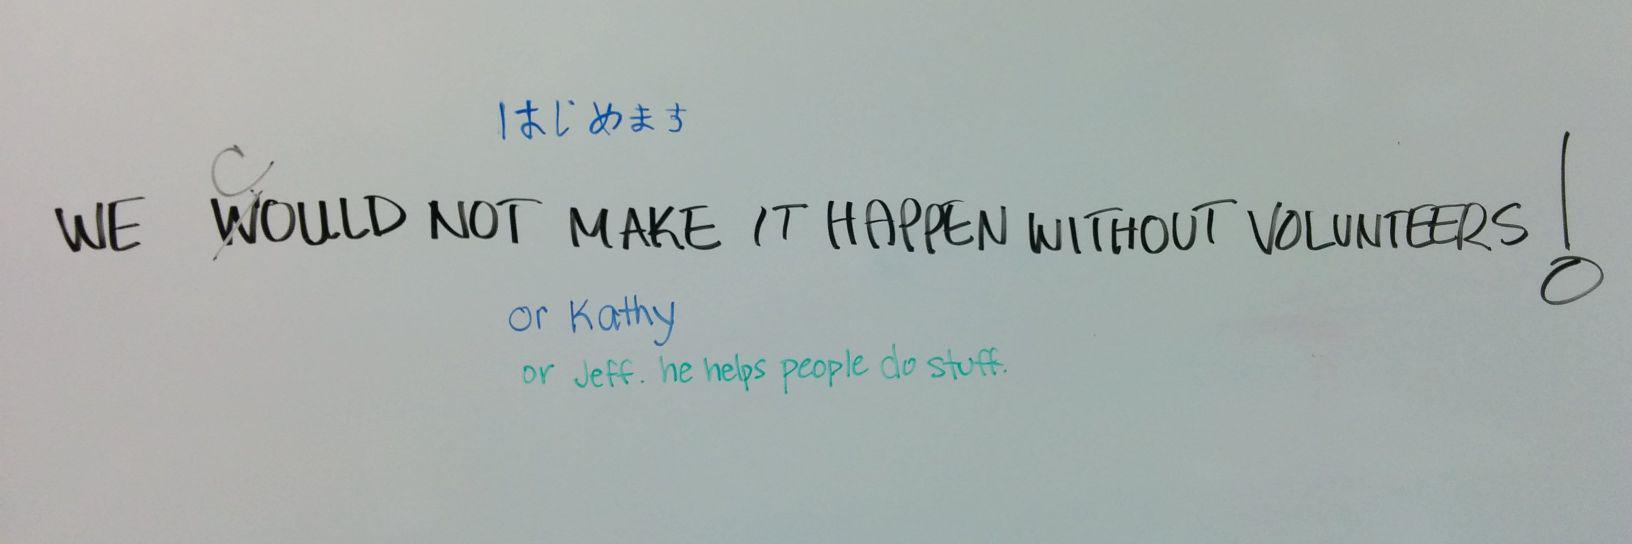 はじめます
WE COULD NOT MAKE IT HAPPEN WITHOUT VOLUNTEERS!
or Kathy
or Jeff. he helps people do stuff.